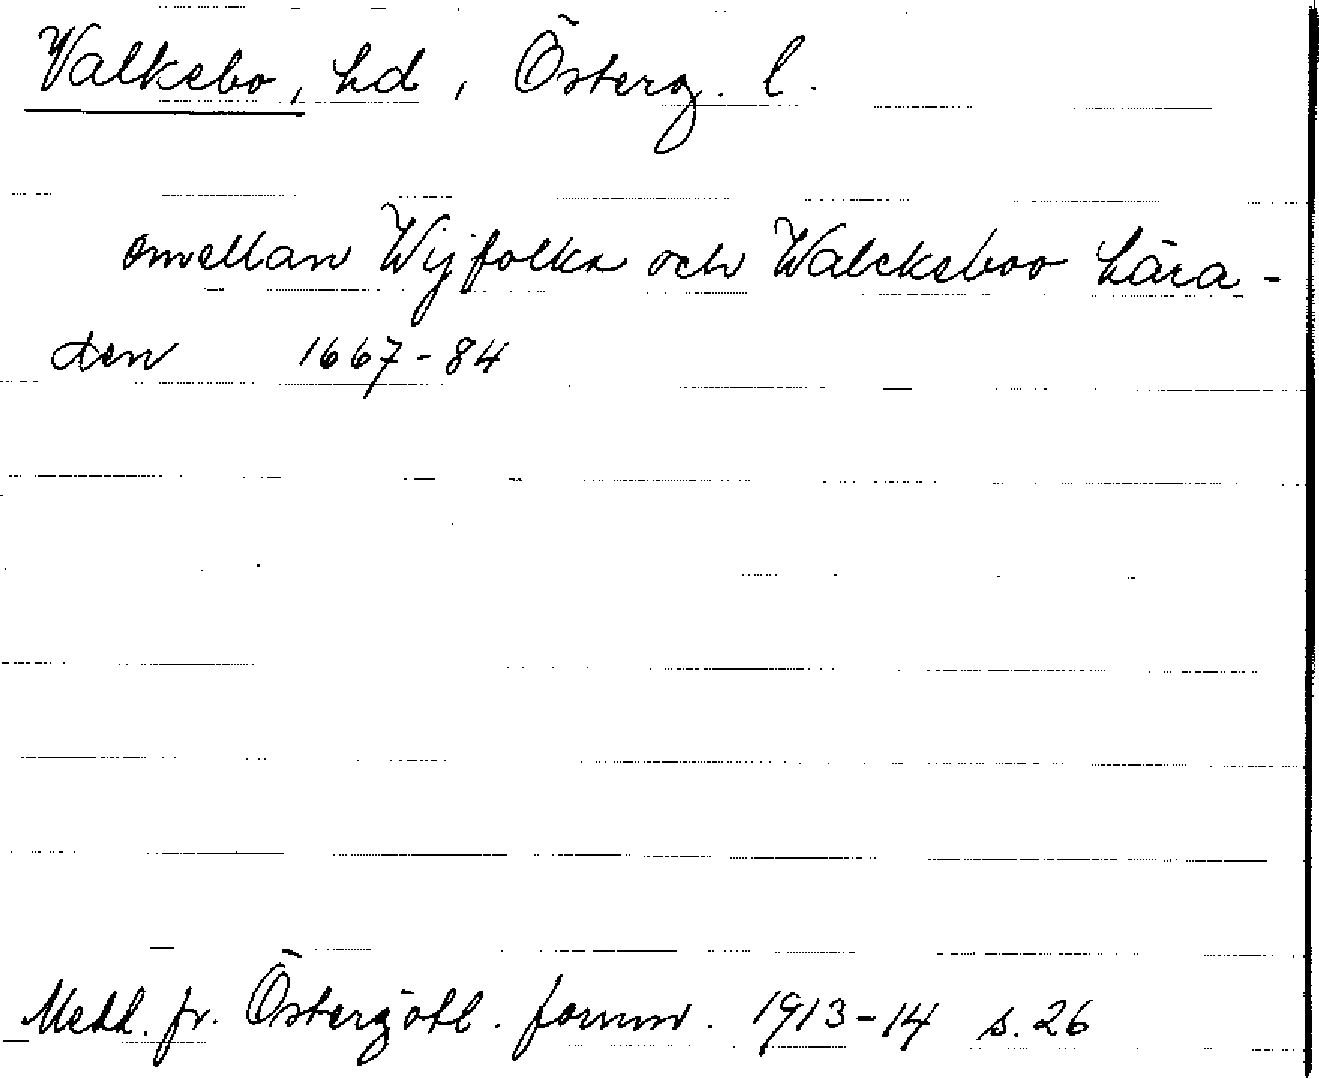 Valkebo, hd, Österg. l.
emellan Wijfolka och Walckeboo hära-
den 1667-84
Medd. fr. Östergötl. fornm. 1913-14 s. 26